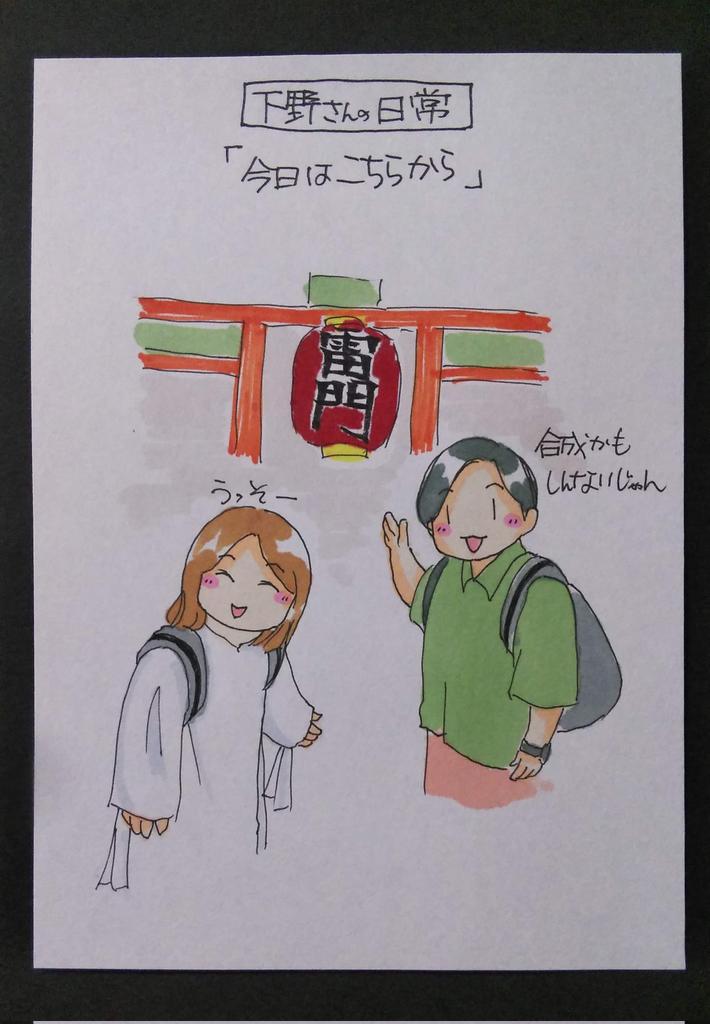 下野さんの日常
「今日はこちらから」
雷門
合成かも
しんないじゃん
うっそー